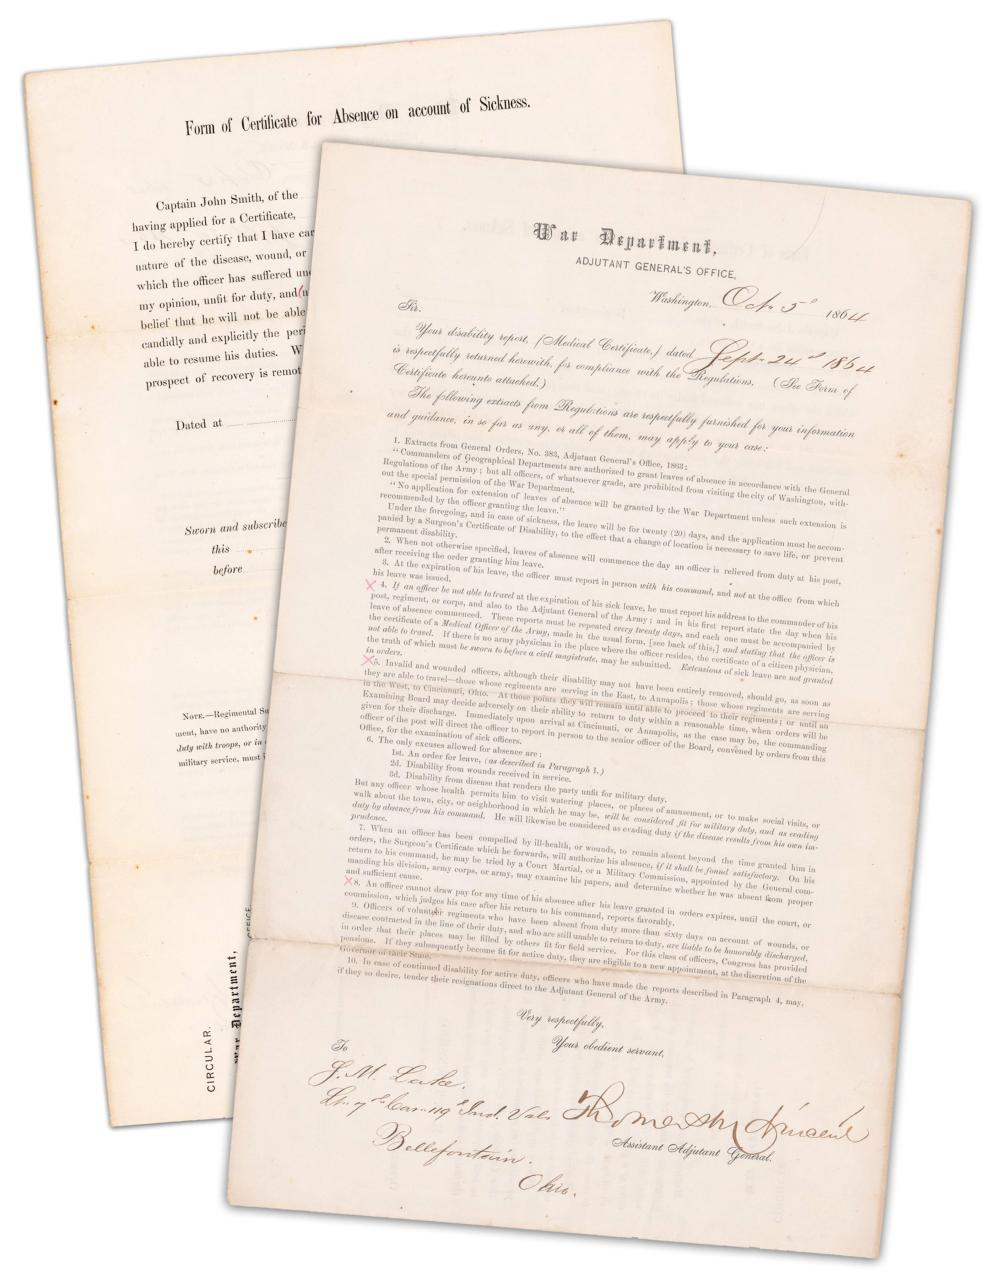 Form of Certificate for Absence on account of Sickness.
Captain John Smith, of the
having applied for a Certificate,
I do hereby certify that I have car
nature of the disease, wound, or
which the officer has suffered un
my opinion, unfit for duty, and
belief that he will not be able
candidly and explicitly the peri
able to resume his duties. W
prospect of recovery is remot
Dated at
Sworn and subscribe
this
before
NOTE.—Regimental Su
ment, have no authority
duty with troops, or in
military service, must
CIRCULAR.
War Department,
OFFICE,
War Department,
ADJUTANT GENERAL'S OFFICE,
Washington, Oct. 5th 1864
Sir:
Your disability report, (Medical Certificate,) dated Sept. 24th 1864
is respectfully returned herewith, for compliance with the Regulations. (See Form of
Certificate hereunto attached.)
The following extracts from Regulations are respectfully furnished for your information
and guidance, in so far as any, or all of them, may apply to your case:
1. Extracts from General Orders, No. 383, Adjutant General's Office, 1863:
"Commanders of Geographical Departments are authorized to grant leaves of absence in accordance with the General
Regulations of the Army; but all officers, of whatsoever grade, are prohibited from visiting the city of Washington, with-
out the special permission of the War Department.
"No application for extension of leaves of absence will be granted by the War Department unless such extension is
recommended by the officer granting the leave."
Under the foregoing, and in case of sickness, the leave will be for twenty (20) days, and the application must be accom-
panied by a Surgeon's Certificate of Disability, to the effect that a change of location is necessary to save life, or prevent
permanent disability.
2. When not otherwise specified, leaves of absence will commence the day an officer is relieved from duty at his post,
after receiving the order granting him leave.
3. At the expiration of his leave, the officer must report in person with his command, and not at the office from which
his leave was issued.
X 4. If an officer be not able to travel at the expiration of his sick leave, he must report his address to the commander of his
post, regiment, or corps, and also to the Adjutant General of the Army; and in his first report state the day when his
leave of absence commenced. These reports must be repeated every twenty days, and each one must be accompanied by
the certificate of a Medical Officer of the Army, made in the usual form, [see back of this,] and stating that the officer is
not able to travel. If there is no army physician in the place where the officer resides, the certificate of a citizen physician,
the truth of which must be sworn to before a civil magistrate, may be submitted. Extensions of sick leave are not granted
in orders.
X 5. Invalid and wounded officers, although their disability may not have been entirely removed, should go, as soon as
they are able to travel—those whose regiments are serving in the East, to Annapolis; those whose regiments are serving
in the West, to Cincinnati, Ohio. At those points they will remain until able to proceed to their regiments; or until an
Examining Board may decide adversely on their ability to return to duty within a reasonable time, when orders will be
given for their discharge. Immediately upon arrival at Cincinnati, or Annapolis, as the case may be, the commanding
officer of the post will direct the officer to report in person to the senior officer of the Board, convened by orders from this
Office, for the examination of sick officers.
6. The only excuses allowed for absence are:
1st. An order for leave, (as described in Paragraph 1.)
2d. Disability from wounds received in service.
3d. Disability from disease that renders the party unfit for military duty.
But any officer whose health permits him to visit watering places, or places of amusement, or to make social visits, or
walk about the town, city, or neighborhood in which he may be, will be considered fit for military duty, and as evading
duty by absence from his command. He will likewise be considered as evading duty if the disease results from his own im-
prudence.
7. When an officer has been compelled by ill-health, or wounds, to remain absent beyond the time granted him in
orders, the Surgeon's Certificate which he forwards, will authorize his absence, if it shall be found satisfactory. On his
return to his command, he may be tried by a Court Martial, or a Military Commission, appointed by the General com-
manding his division, army corps, or army, may examine his papers, and determine whether he was absent from proper
and sufficient cause.
X 8. An officer cannot draw pay for any time of his absence after his leave granted in orders expires, until the court, or
commission, which judges his case after his return to his command, reports favorably.
9. Officers of volunteer regiments who have been absent from duty more than sixty days on account of wounds, or
disease contracted in the line of their duty, and who are still unable to return to duty, are liable to be honorably discharged,
in order that their places may be filled by others fit for field service. For this class of officers, Congress has provided
pensions. If they subsequently become fit for active duty, they are eligible to a new appointment, at the discretion of the
Governor of their State.
10. In case of continued disability for active duty, officers who have made the reports described in Paragraph 4, may,
if they so desire, tender their resignations direct to the Adjutant General of the Army.
Very respectfully,
Your obedient servant,
To
J. M. Lake.
Lt. 7th Cav. 119th Ind. Vols
Thomas M Vincent
Assistant Adjutant General.
Bellefontain.
Ohio.